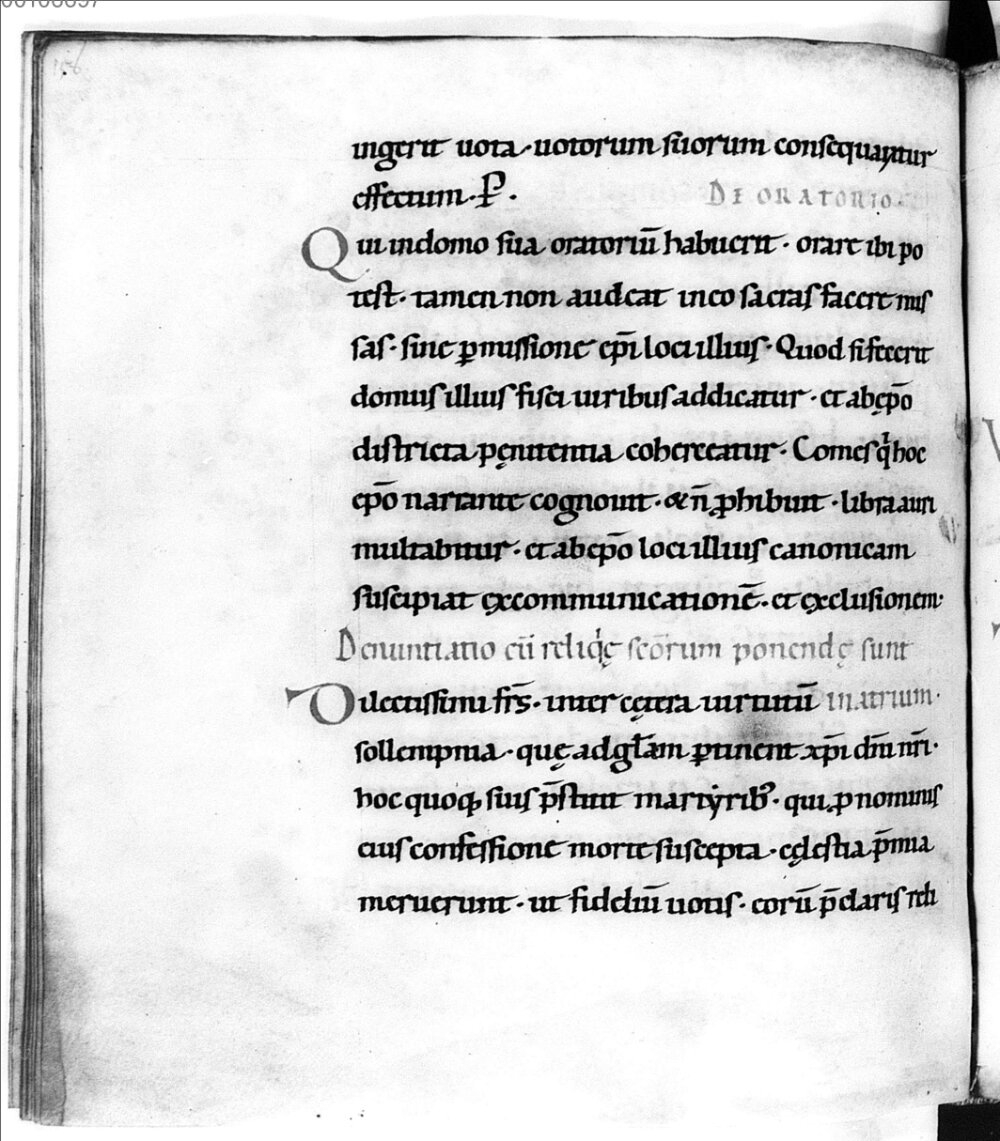 ingerit uota · uotorum suorum consequantur
effectum · P̄ · DE ORATORIO ·
Qui in domo sua oratoriū habuerit · orare ibi po
test · tamen non audeat in eo sacras facere mis
sas · sine ꝑmissione ep̄i loci illius · Quod si fecerit
domus illius fisci uiribus addicatur · et ab ep̄o
districta pęnitentia coherceatur · Comes q̇ hoc
ep̄o narrante cognouit · & n̄ ꝓhibuit · libra auri
multabitur · et ab ep̄o loci illius canonicam
suscipiat ęxcommunicationē · et ęxclusionem ·
Denuntiatio cū reliq̇ę sc̄orum ponendę sunt
Dilectissimi fr̄s · inter cętera uirtutū in atrium ·
sollempnia · quę ad gl̄am ꝑtinent xp̄i dn̄i nr̄i ·
hoc quoqꝫ suis p̄stitit martẏribꝫ · qui ꝓ nominis
eius confessione morte suscepta · cęlestia p̄mia
meruerunt · ut fideliū uotis · eorū p̄claris reli